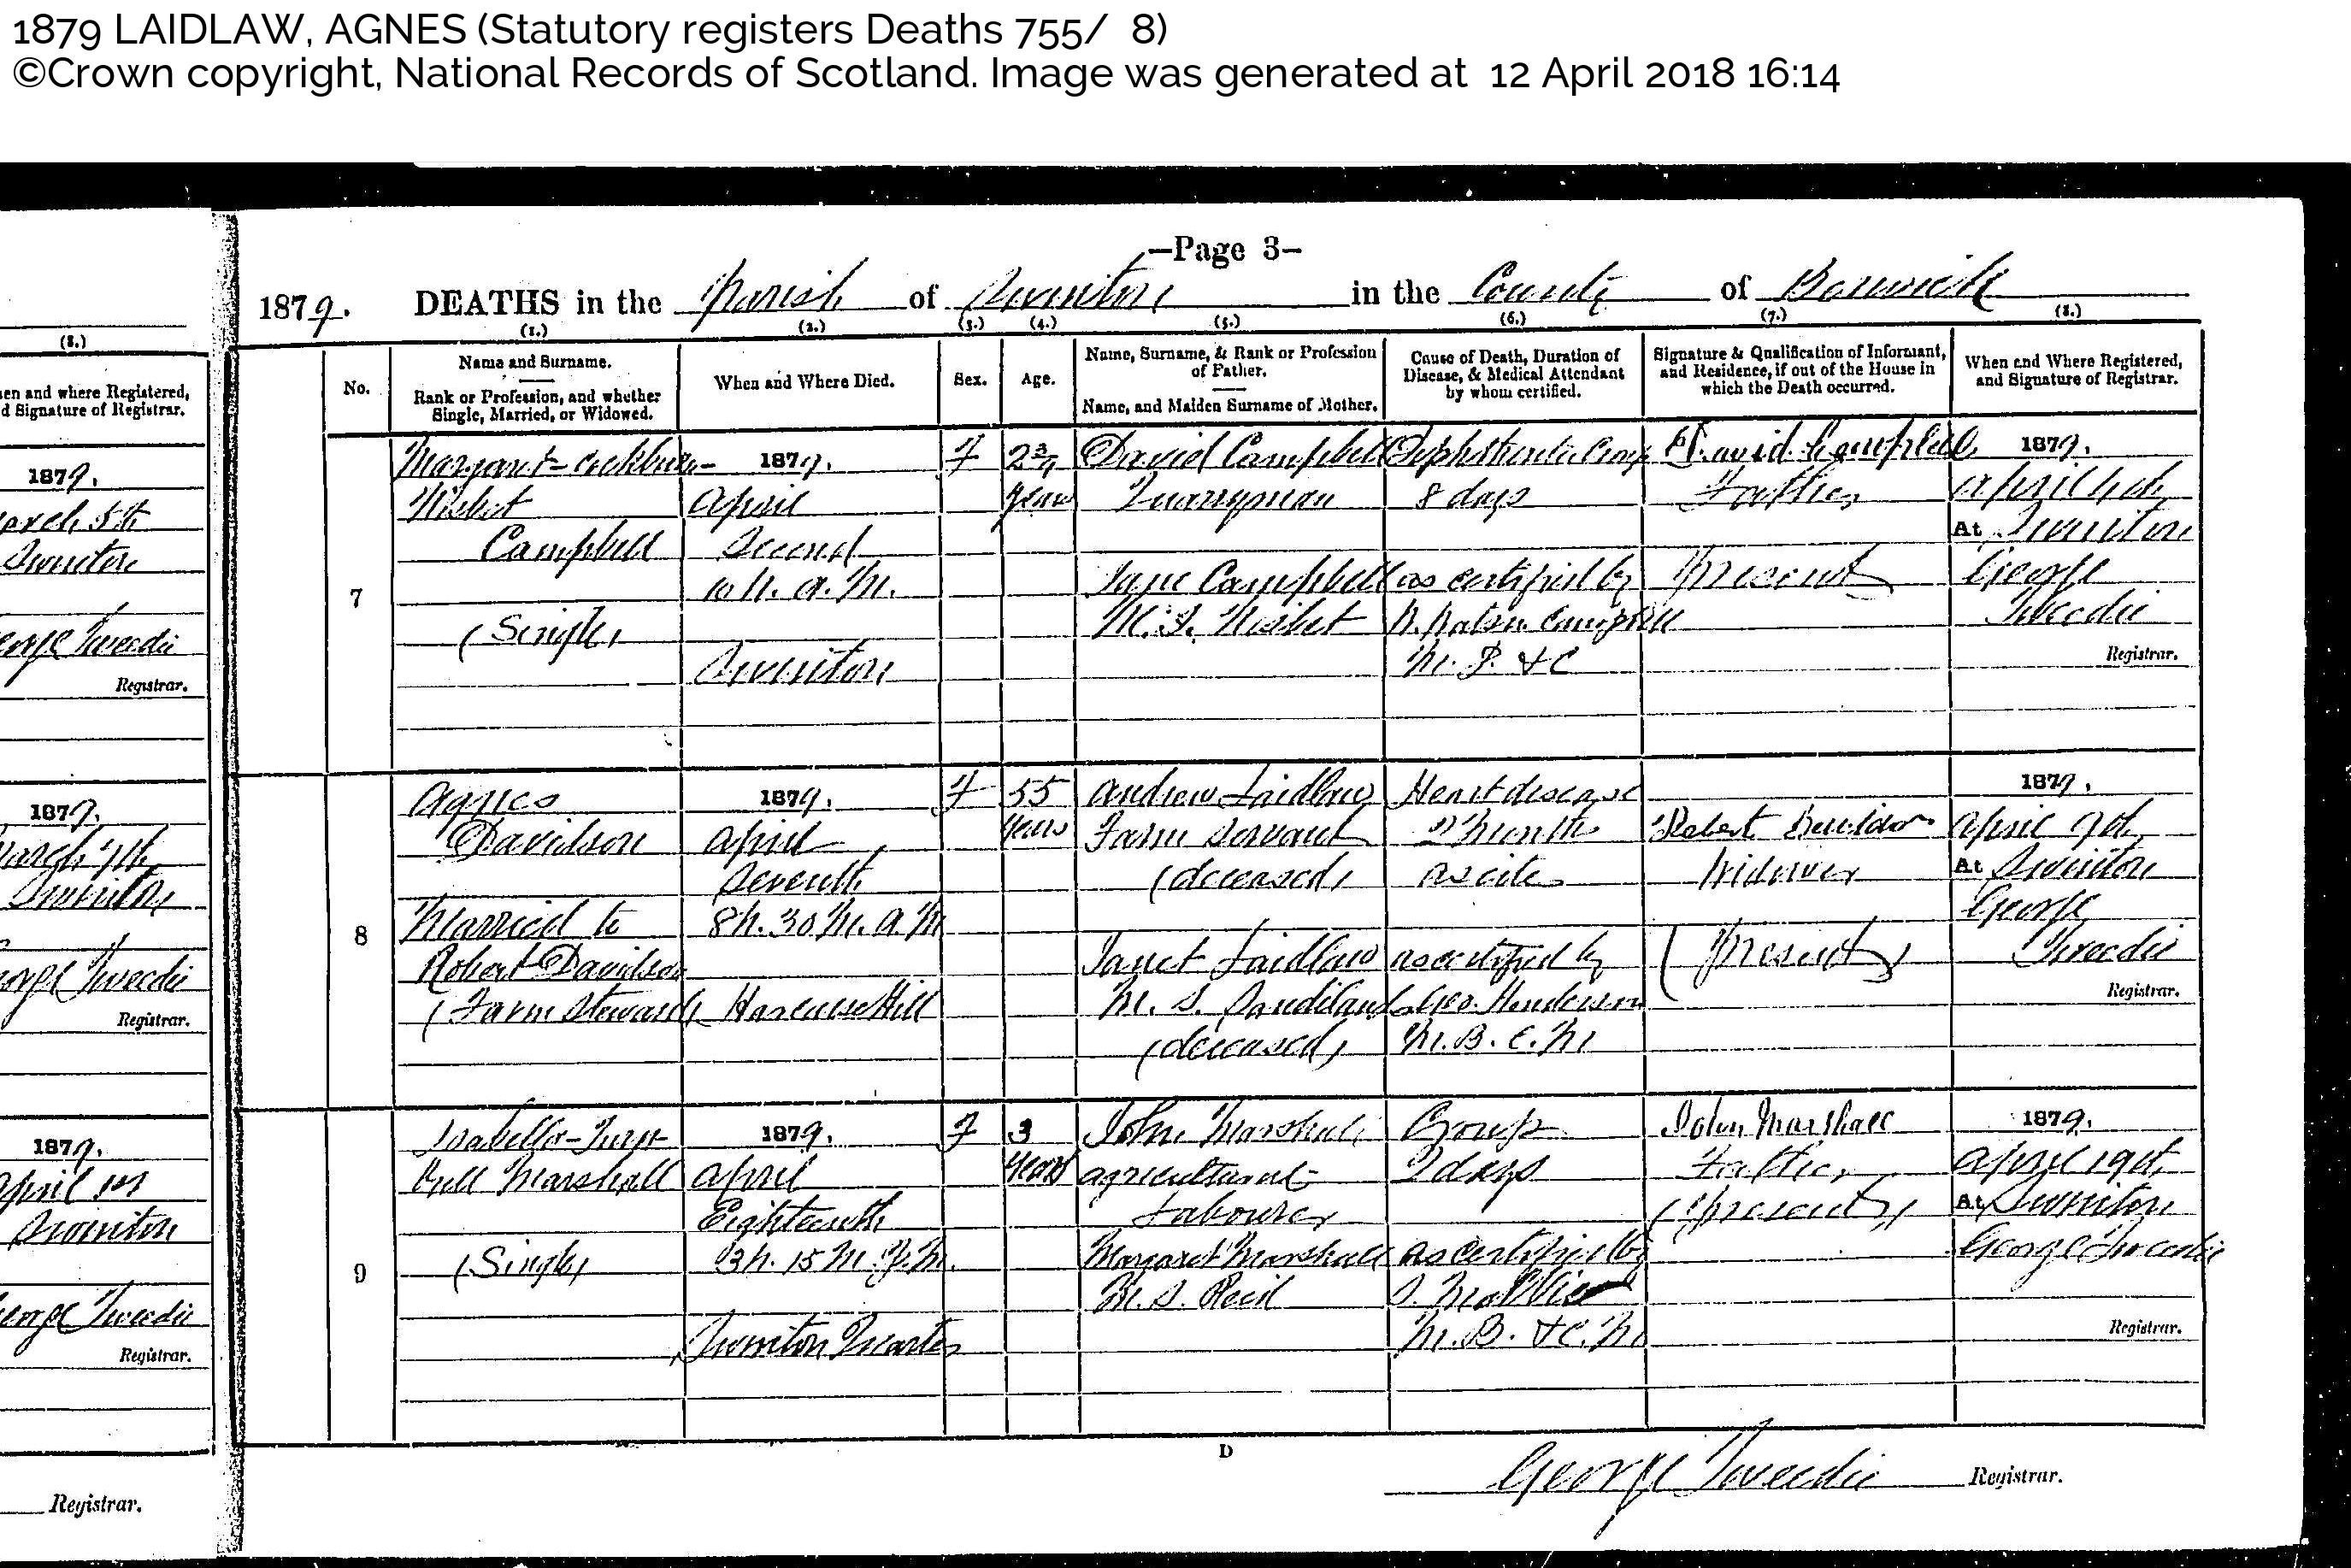 1879 LAIDLAW, AGNES (Statutory registers Deaths 755/ 8)
©Crown copyright, National Records of Scotland. Image was generated at 12 April 2018 16:14
—Page 3—
1879. DEATHS in the Parish of Swinton in the County of Berwick
(8.)
(1.) (2.) (3.) (4.) (5.) (6.) (7.) (8.)
en and where Registered,
d Signature of Registrar.
1879.
March 5th
Swinton
George Tweedie
Registrar.
1879.
March 7th
Swinton
George Tweedie
Registrar.
1879.
April 1st
Swinton
George Tweedie
Registrar.
Registrar.
No.
Name and Surname.
Rank or Profession, and whether
Single, Married, or Widowed.
When and Where Died.
Sex.
Age.
Name, Surname, & Rank or Profession
of Father.
Name, and Maiden Surname of Mother.
Cause of Death, Duration of
Disease, & Medical Attendant
by whom certified.
Signature & Qualification of Informant,
and Residence, if out of the House in
which the Death occurred.
When and Where Registered,
and Signature of Registrar.
7
Margaret Cockburn
Nisbet
Campbell
(Single)
1879.
April
Second
10 h. a. M.
Swinton
F
2 3/4
Years
David Campbell
Quarryman
Jane Campbell
M. S. Nisbet
Diphtheritic Croup
8 days
as certified by
Campbell
David Campbell
Father
Present
1879.
April 4th
At Swinton
George
Tweedie
Registrar.
8
Agnes
Davidson
Married to
Robert Davidson
(Farm Steward)
1879.
April
Seventh
8 h. 30 M. a. M
Harcarse Hill
F
55
Years
Andrew Laidlaw
Farm Servant
(deceased)
Janet Laidlaw
M. S. Sandilands
(deceased)
Heart disease
2 Months
ascites
as certified by
Geo. Henderson
M. B. C. M
Robert Davidson
Widower
(Present)
1879.
April 9th
At Swinton
George
Tweedie
Registrar.
9
Isabella Turn-
bull Marshall
(Single)
1879.
April
Eighteenth
3 h. 15 M. P. M.
Swinton Quarter
F
3
Years
John Marshall
Agricultural
Labourer
Margaret Marshall
M. S. Reid
Croup
2 days
as certified by
M. B. & C. M
John Marshall
Father
(Present)
1879.
April 19th
At Swinton
George Tweedie
Registrar.
D
George Tweedie Registrar.